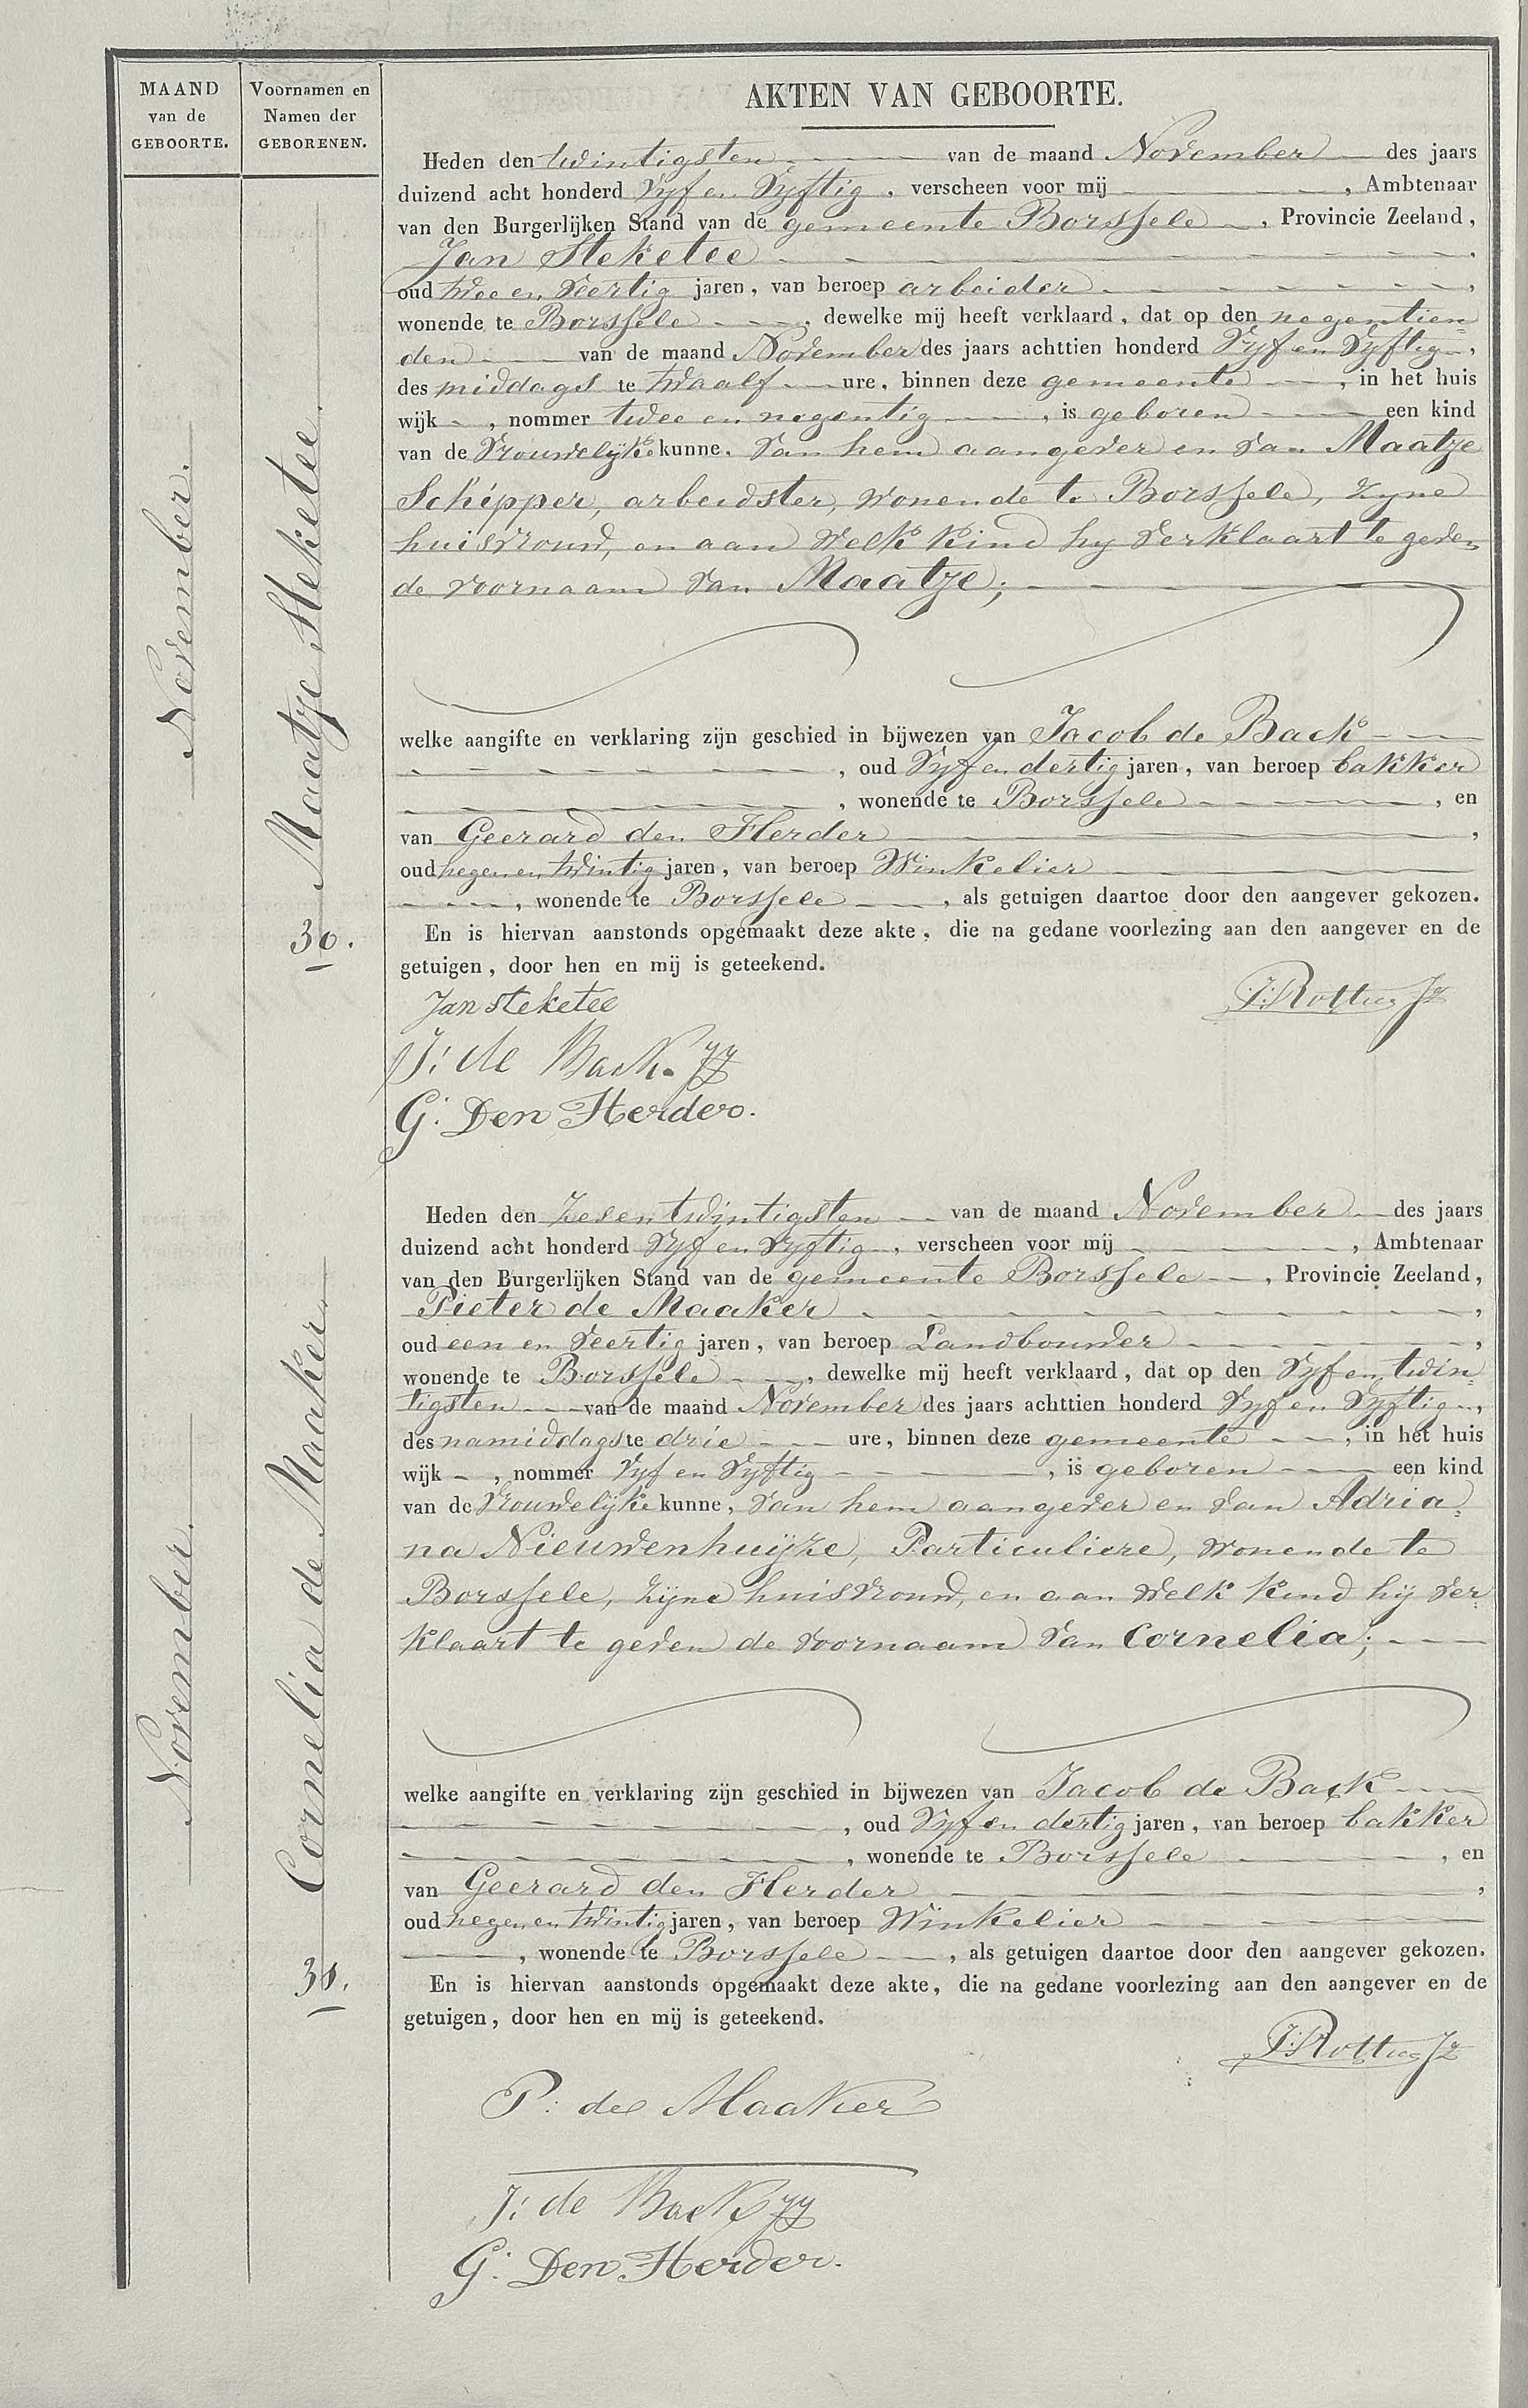 MAAND
van de
GEBOORTE.
Voornamen en
Namen der
GEBORENEN.
AKTEN VAN GEBOORTE.
November.
Maatje Steketee.
30.
Heden den twintigsten van de maand November des jaars
duizend acht honderd vyf en vyftig, verscheen voor mij , Ambtenaar
van den Burgerlijken Stand van de gemeente Borssele, Provincie Zeeland,
Jan Steketee,
oud twee en veertig jaren, van beroep arbeider,
wonende te Borssele, dewelke mij heeft verklaard, dat op den negentien=
den van de maand November des jaars achttien honderd vyf en vyftig,
des middags te twaalf ure, binnen deze gemeente, in het huis
wijk -, nommer twee en negentig, is geboren een kind
van de vrouwelyke kunne, van hem aangever en van Maatje
Schipper, arbeidster, wonende te Borssele, zyne
huisvrouw, en aan welk kind hy verklaart te geven
de voornaam van Maatje;
welke aangifte en verklaring zijn geschied in bijwezen van Jacob de Back
, oud vyf en dertig jaren, van beroep bakker
, wonende te Borssele, en
van Geerard den Herder,
oud negen en twintig jaren, van beroep Winkelier
, wonende te Borssele, als getuigen daartoe door den aangever gekozen.
En is hiervan aanstonds opgemaakt deze akte, die na gedane voorlezing aan den aangever en de
getuigen, door hen en mij is geteekend.
Jan steketee
J: de Back
G: Den Herder.
November.
Cornelia de Maaker.
31.
Heden den zes en twintigsten van de maand November des jaars
duizend acht honderd vyf en vyftig, verscheen voor mij , Ambtenaar
van den Burgerlijken Stand van de gemeente Borssele, Provincie Zeeland,
Pieter de Maaker,
oud een en veertig jaren, van beroep Landbouwer,
wonende te Borssele, dewelke mij heeft verklaard, dat op den vyf en twin=
tigsten van de maand November des jaars achttien honderd vyf en vyftig,
des namiddags te drie ure, binnen deze gemeente, in het huis
wijk -, nommer vyf en vyftig, is geboren een kind
van de vrouwelyke kunne, van hem aangever en van Adria=
na Nieuwenhuijze, Particuliere, wonende te
Borssele, zijne huisvrouw, en aan welk kind hij ver=
klaart te geven de voornaam van Cornelia;
welke aangifte en verklaring zijn geschied in bijwezen van Jacob de Back
, oud vyf en dertig jaren, van beroep bakker
, wonende te Borssele, en
van Geerard den Herder,
oud negen en twintig jaren, van beroep Winkelier
, wonende te Borssele, als getuigen daartoe door den aangever gekozen.
En is hiervan aanstonds opgemaakt deze akte, die na gedane voorlezing aan den aangever en de
getuigen, door hen en mij is geteekend.
P: de Maaker
J: de Back
G: Den Herder.